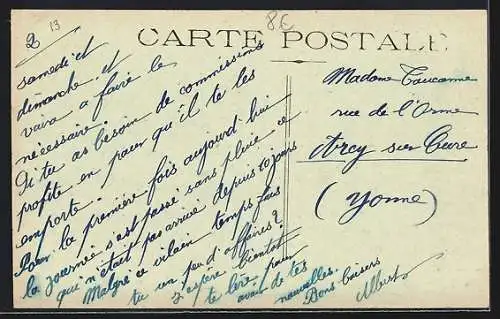 2 13
8€
CARTE POSTALE
samedi et
dimanche et
vaira a faire le
nécessaire.
Si tu as besoin de commissions
profite en pour qu'il te les
emporte.
Pour la première fois aujourd'hui
la journée s'est passé sans pluie ce
qui n'était pas arrivé depuis 10 jours
Malgré ce vilain temps fais
tu un peu d'affaires?
J'espère bientôt
te lire pour
avoir de tes
nouvelles.
Bons baisers
Albert
Madame
rue de l'Orme
Arcy sur Cure
(Yonne)